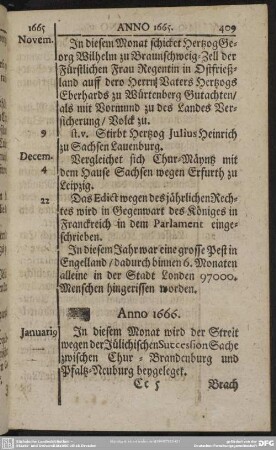 1665 ANNO 1665. 409
Novem. In diesem Monat schicket Hertzog Ge-
org Wilhelm zu Braunschweig-Zell der
Fürstlichen Frau Regentin in Ostfrieß-
land auff dero Herrn Vaters Hertzogs
Eberhards zu Würtenberg Gutachten/
als mit Vormund zu des Landes Ver-
sicherung/ Volck zu.
9 st.v. Stirbt Hertzog Julius Heinrich
zu Sachsen Lauenburg.
Decem. Vergleichet sich Chur-Mäyntz mit
4 dem Hause Sachsen wegen Erfurth zu
Leipzig.
22 Das Edict wegen des jährlichen Rech-
tes wird in Gegenwart des Königes in
Franckreich in dem Parlament einge-
schrieben.
In diesem Jahr war eine grosse Pest in
Engelland/ dadurch binnen 6. Monaten
alleine in der Stadt Londen 97000.
Menschen hingerissen worden.
Anno 1666.
Januarij In diesem Monat wird der Streit
wegen der Jülichischen Succession Sache
zwischen Chur-Brandenburg und
Pfaltz-Neuburg beygeleget.
Cc 5 Brach